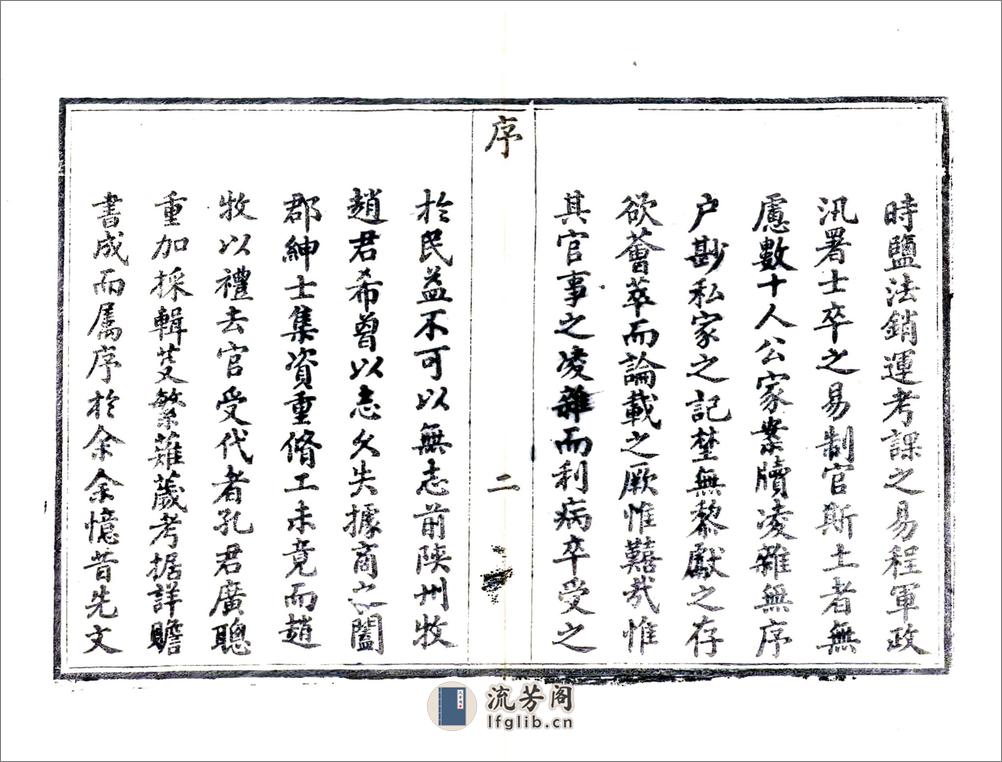 時鹽法銷運考課之易程軍政
汛署士卒之易制官斯土者無
慮數十人公家案牘凌雜無序
户尠私家之記埜無黎獻之存
欲薈萃而論載之厥惟囏哉惟
其官事之凌雜而利病卒受之
序
二
於民益不可以無志前陝州牧
趙君希曾以志久失據商之闔
郡紳士集資重脩工未竟而趙
牧以禮去官受代者孔君廣聰
重加採輯芟繁薙薉考据詳贍
書成而属序於余余憶昔先文
流芳阁
lfglib.cn